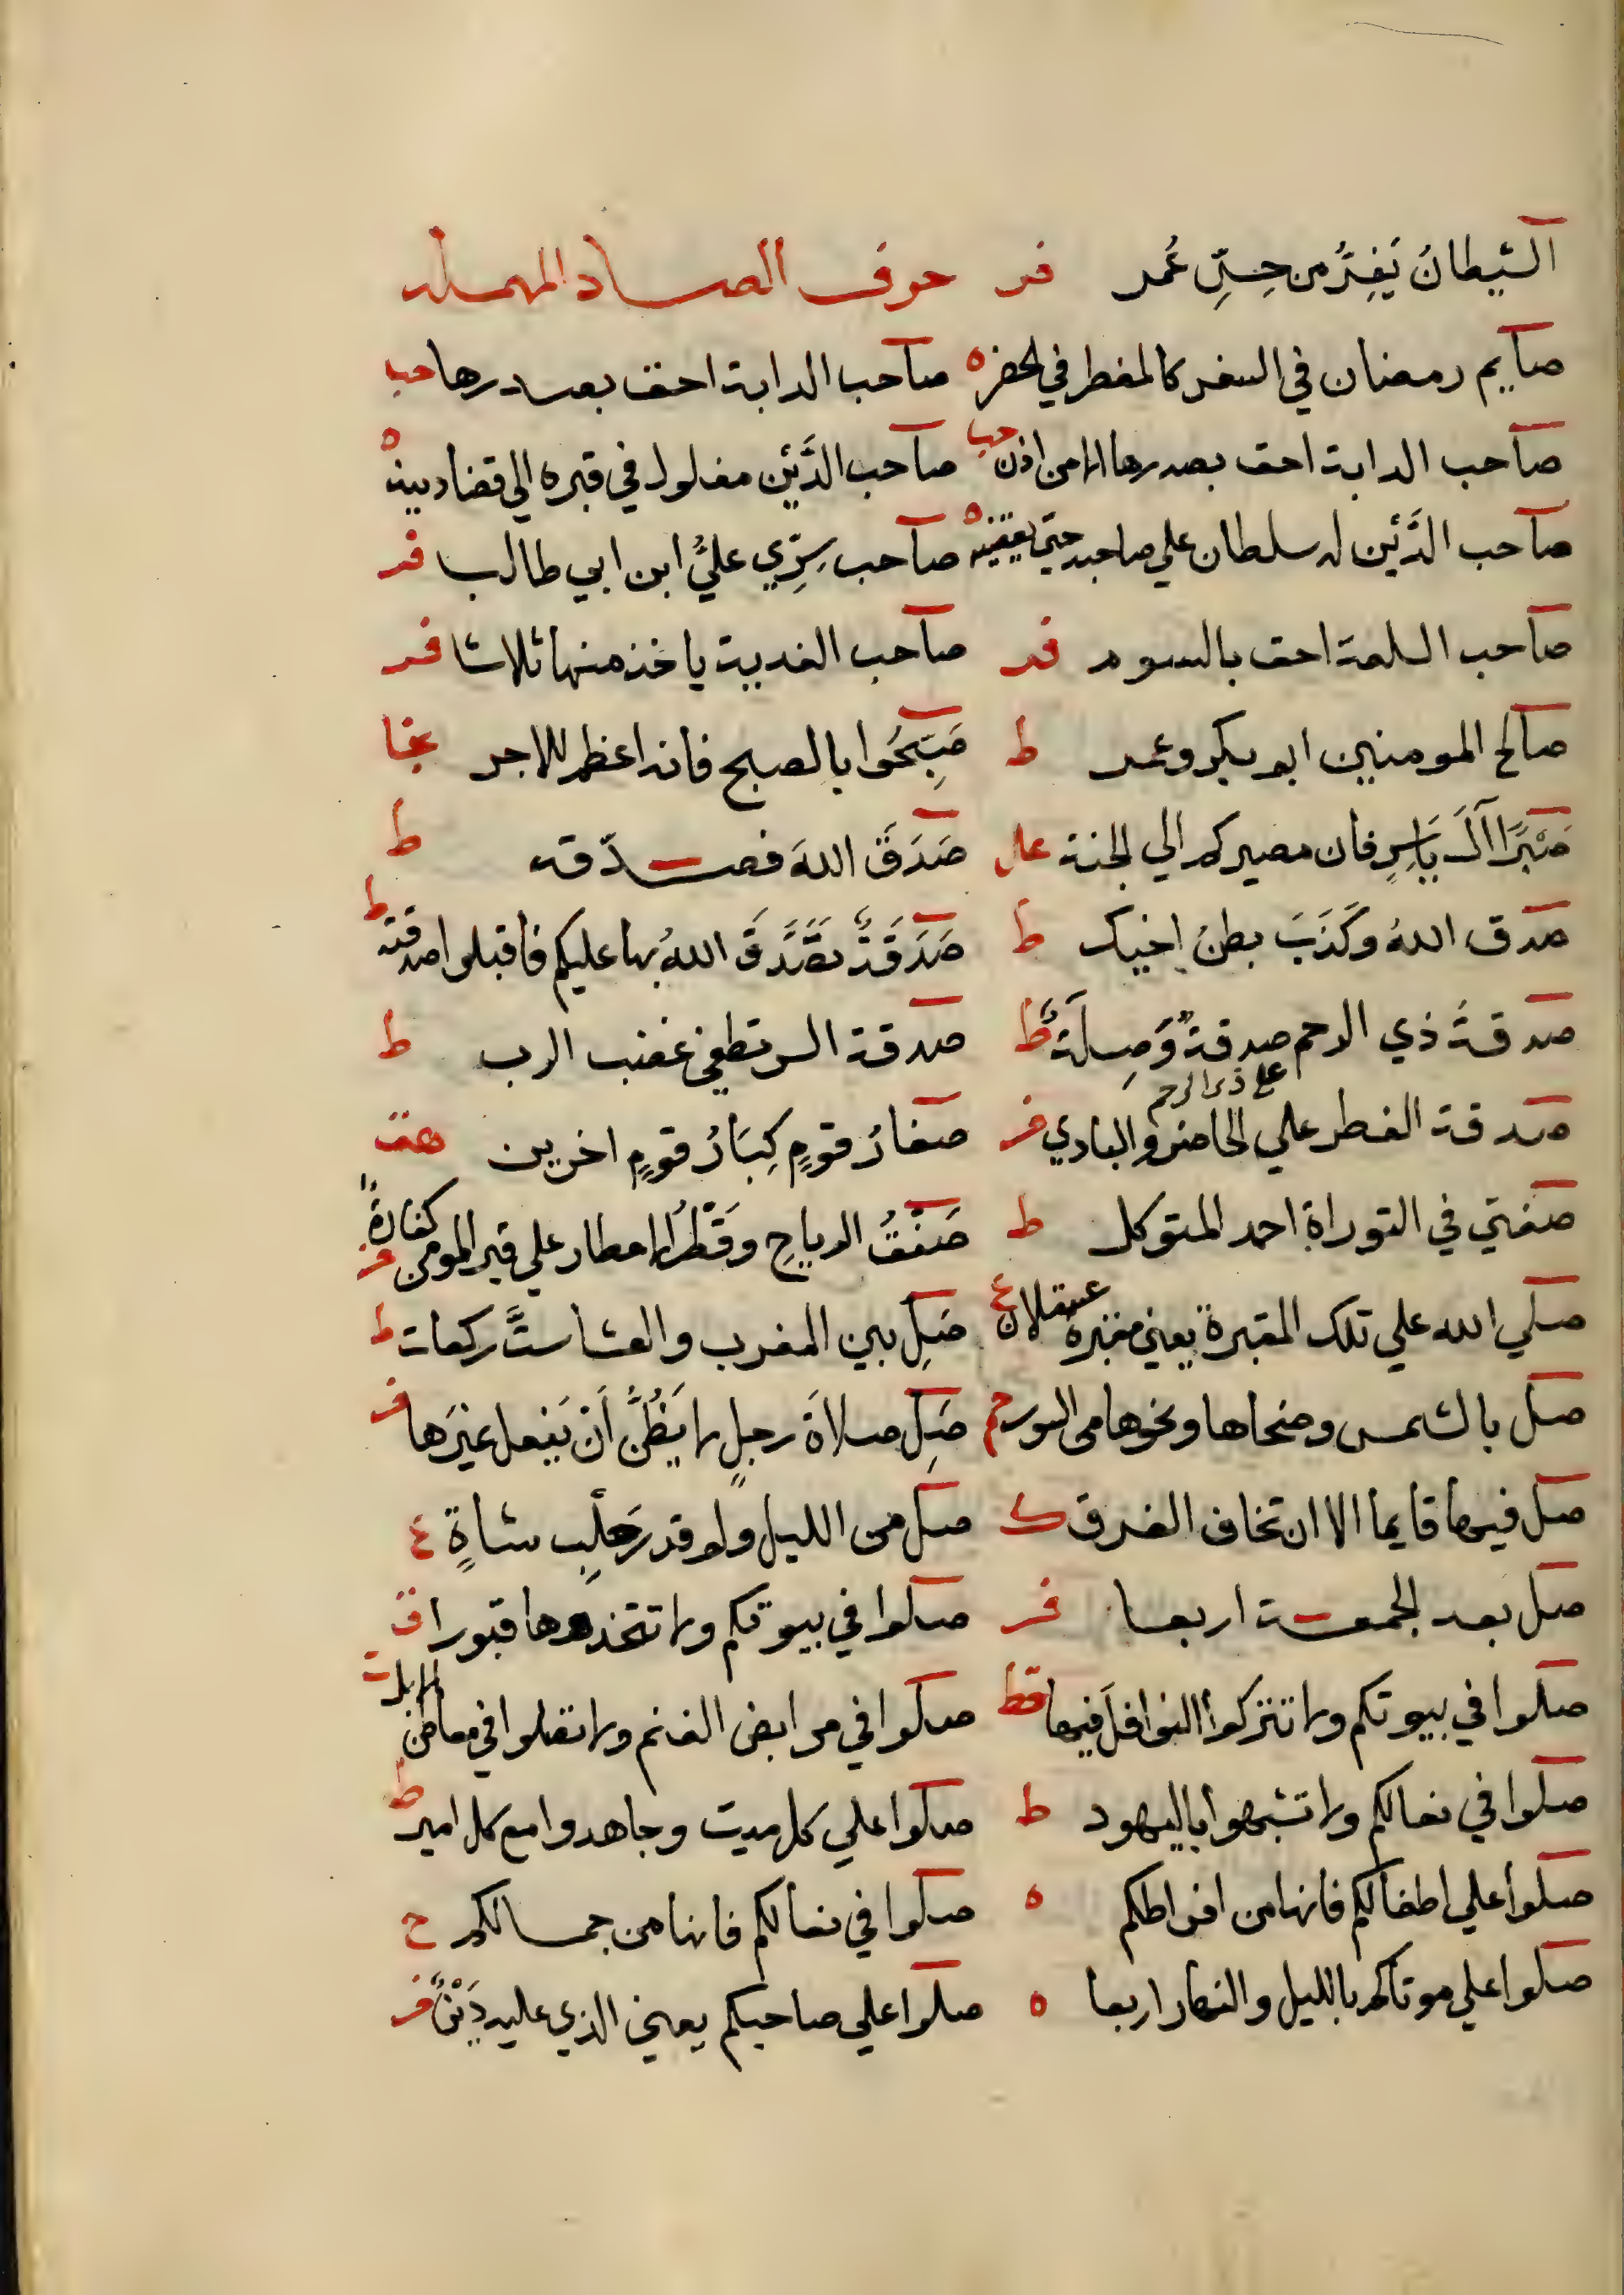 الشيطانُ يَفِرُّ من حِسِّ عُمر فر حرف الصاد المهملة
صايم رمضان في السفر كالمفطر في الحضر ه صاحب الدابة احق بصدرها حب
صاحب الدابة احق بصدرها الا من اذن حب صاحب الدَّيْن مغلول في قبره الي قضا دينه ه
صاحب الدَّيْن له سلطان علي صاحبه حتي يقضيه ه صاحب سِرِّي عليُّ ابن ابي طالب فر
صاحب السلعة احق بالسوم فر صاحب الغديية ياخذ منها ثلاثا فر
صالح المومنين ابو بكر وعمر ط صَبِّحُوا بالصبح فانه اعظم للاجر نجا
صَبْرًا آلَ يَاسِرٍ فان مصيركم الي الجنة عال صَدَقَ اللهَ فصدّقه ط
صدق اللهُ وكَذَبَ بطنُ اخيك ط صَدَقَةٌ تصَّدَّقَ اللهُ بها عليكم فاقبلوا صدقته ط
صدقةُ ذي الرحم علي ذي الرحم صدقةٌ وَصِلَةٌ ط صدقة السر تطفي غضب الرب ط
صدقة الفطر علي الحاضر والبادي فر صغارُ قومٍ كِبَارُ قومٍ اخرين هق
صفتي في التوراة احمد المتوكل ط صَفْقُ الرياحِ وقَطْرُ الامطار علي قبر المومن كفارةٌ فر
صلي الله علي تلك المقبرة يعني مقبرة عسقلان ع صَلِ بين المغرب والعشا ستَّ ركعات ط
صل بالشمس وضحاها ونحوها من السور حم صَلِ صلاةَ رجلٍ لا يَظُنُّ أن يَفعل غيرَها فر
صل فيها قايما الا ان تخاف الغرق ك صل من الليل ولو قدرَ حَلْبِ شاةٍ ع
صل بعد الجمعة اربعا فر صلوا في بيوتكم ولا تتخذوها قبورا ت
صلوا في بيوتكم ولا تتركوا النوافلَ فيها قط صلوا في مرابض الغنم ولا تصلوا في معاطن الابل ت
صلوا في نعالكم ولا تشبهوا باليهود ط صلوا علي كل ميت وجاهدوا مع كل امير ط
صلوا علي اطفالكم فانها من افراطكم ه صلوا في نعالكم فانها من جمالكم ح
صلوا علي موتاكم بالليل والنهار اربعا ه صلوا علي صاحبكم يعني الذي عليه دَيْنٌ فر